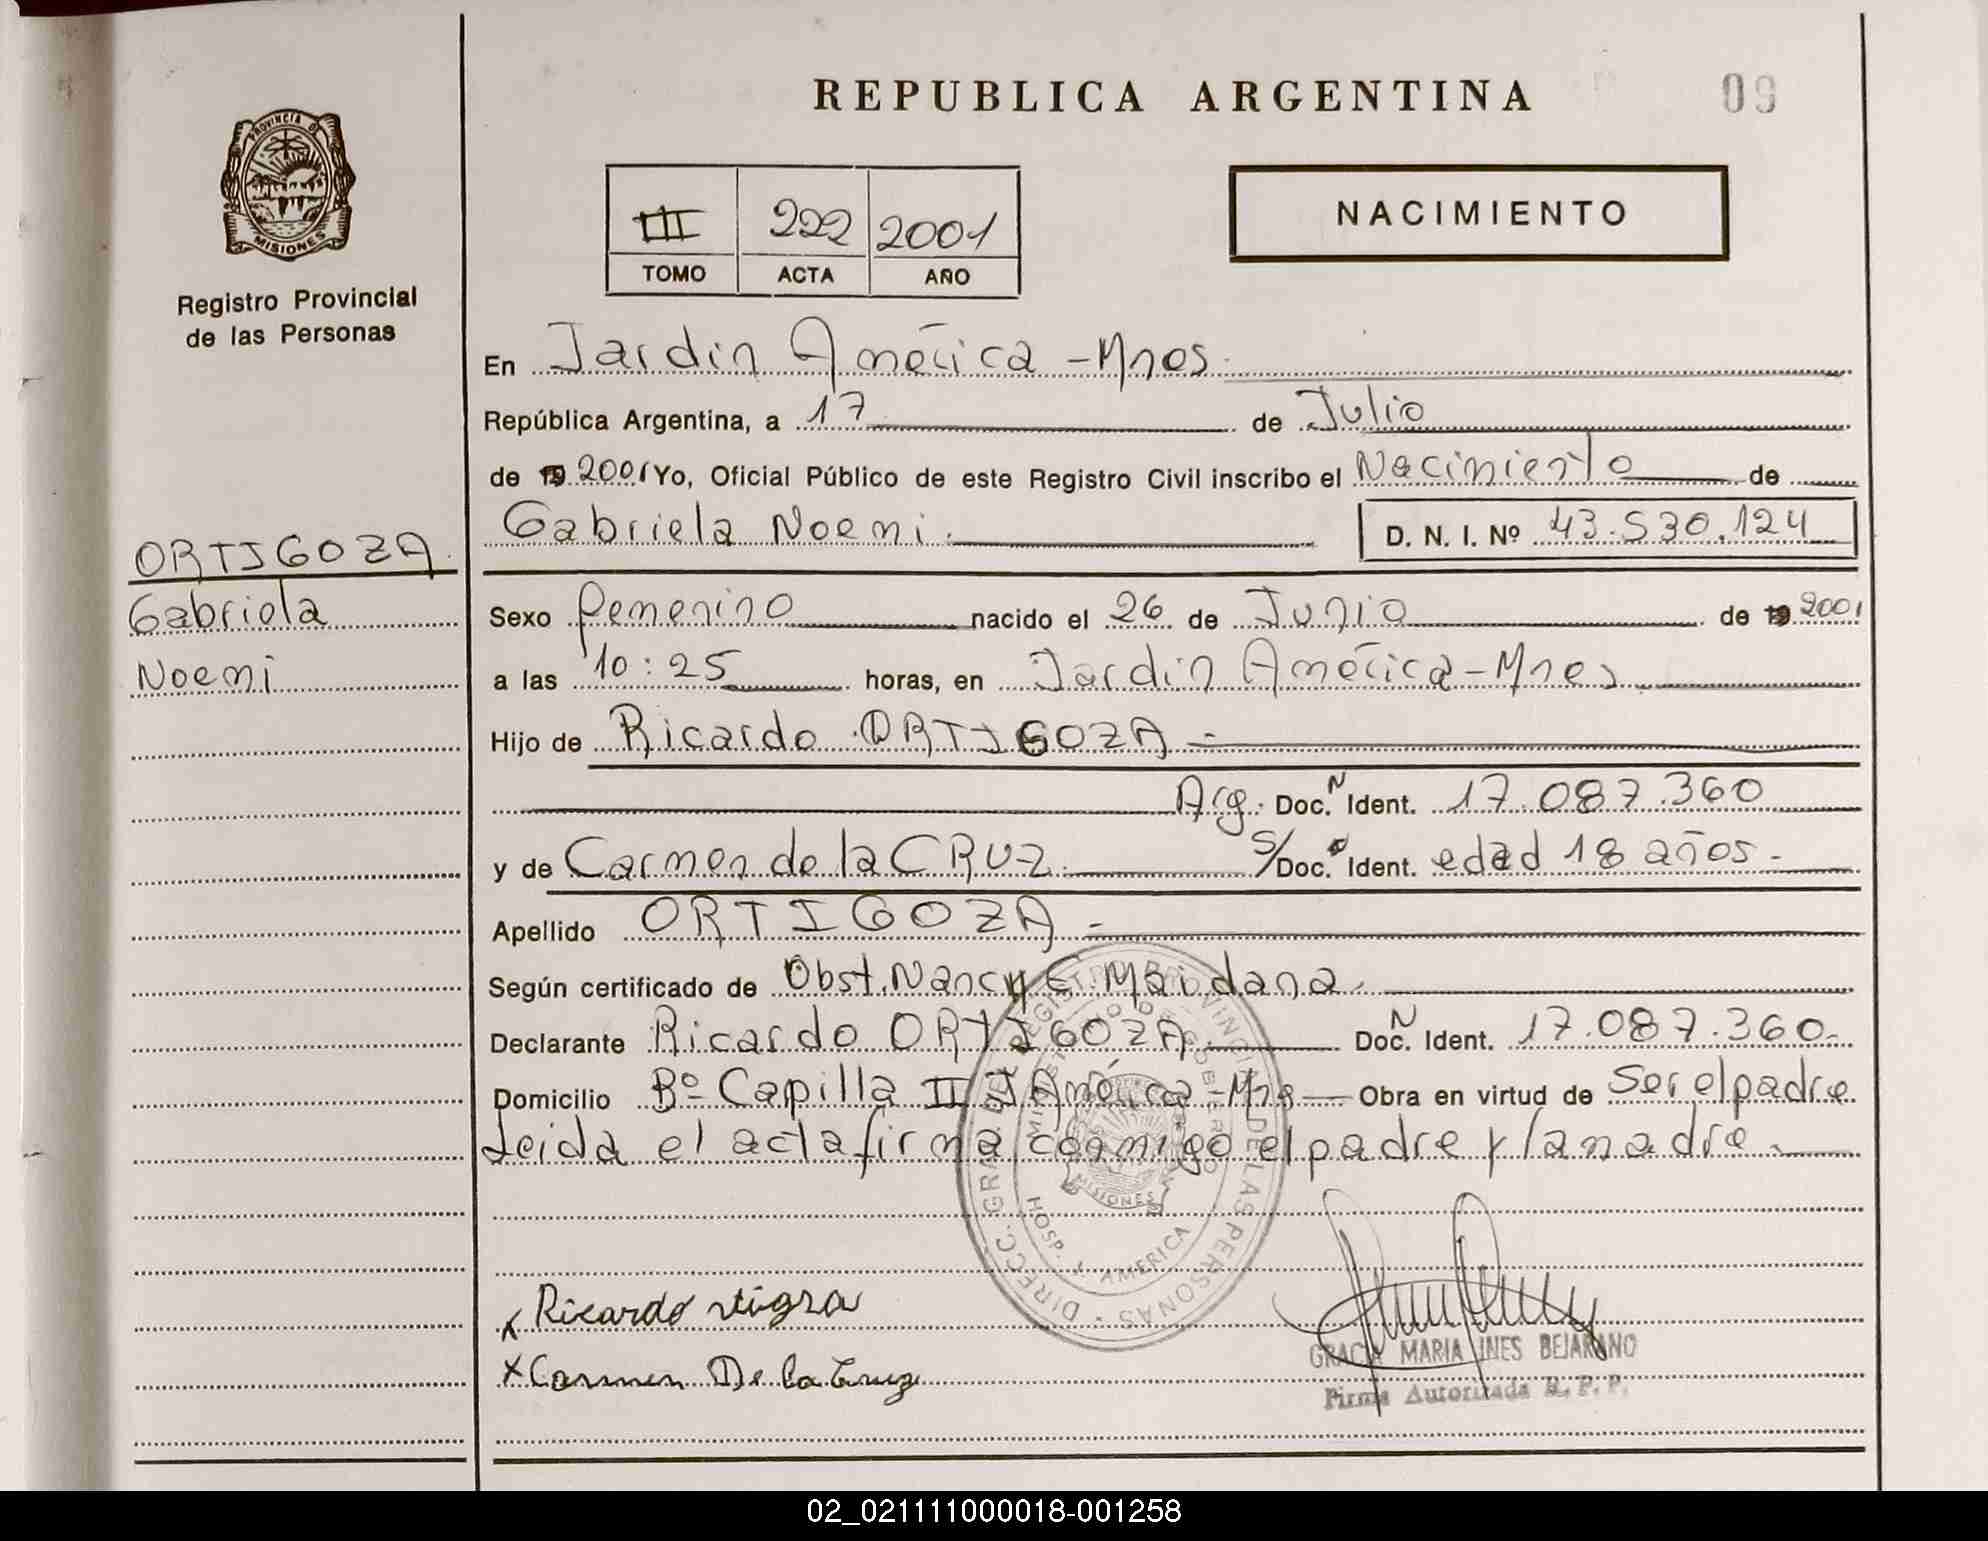 REPUBLICA ARGENTINA
09
PROVINCIA DE MISIONES
Registro Provincial
de las Personas
III 222 2001
TOMO ACTA AÑO
NACIMIENTO
En Jardin América - Mnes.
República Argentina, a 17 de Julio
de 19 2001 Yo, Oficial Público de este Registro Civil inscribo el Nacimiento de
Gabriela Noemi. D. N. I. Nº 43.530.124
ORTIGOZA
Gabriela
Noemi
Sexo femenino nacido el 26 de Junio de 19 2001
a las 10:25 horas, en Jardin América - Mnes
Hijo de Ricardo ORTIGOZA -
Arg. Doc. N Ident. 17.087.360
y de Carmen de la CRUZ. S/Doc. Ident. edad 18 años -
Apellido ORTIGOZA -
Según certificado de Obst. Nancy E. Maidana.
Declarante Ricardo ORTIGOZA Doc. N Ident. 17.087.360-
Domicilio Bº Capilla II J América - Mns Obra en virtud de ser el padre
Leida el acta firma conmigo el padre y la madre.
DIRECC. GRAL. DEL REGISTRO PROVINCIAL DE LAS PERSONAS
MISIONES
HOSP. AMERICA
x Ricardo
x Carmen De la Cruz
GRACIA MARIA INES BEJARANO
Firma Autorizada R. P. P.
02_021111000018-001258